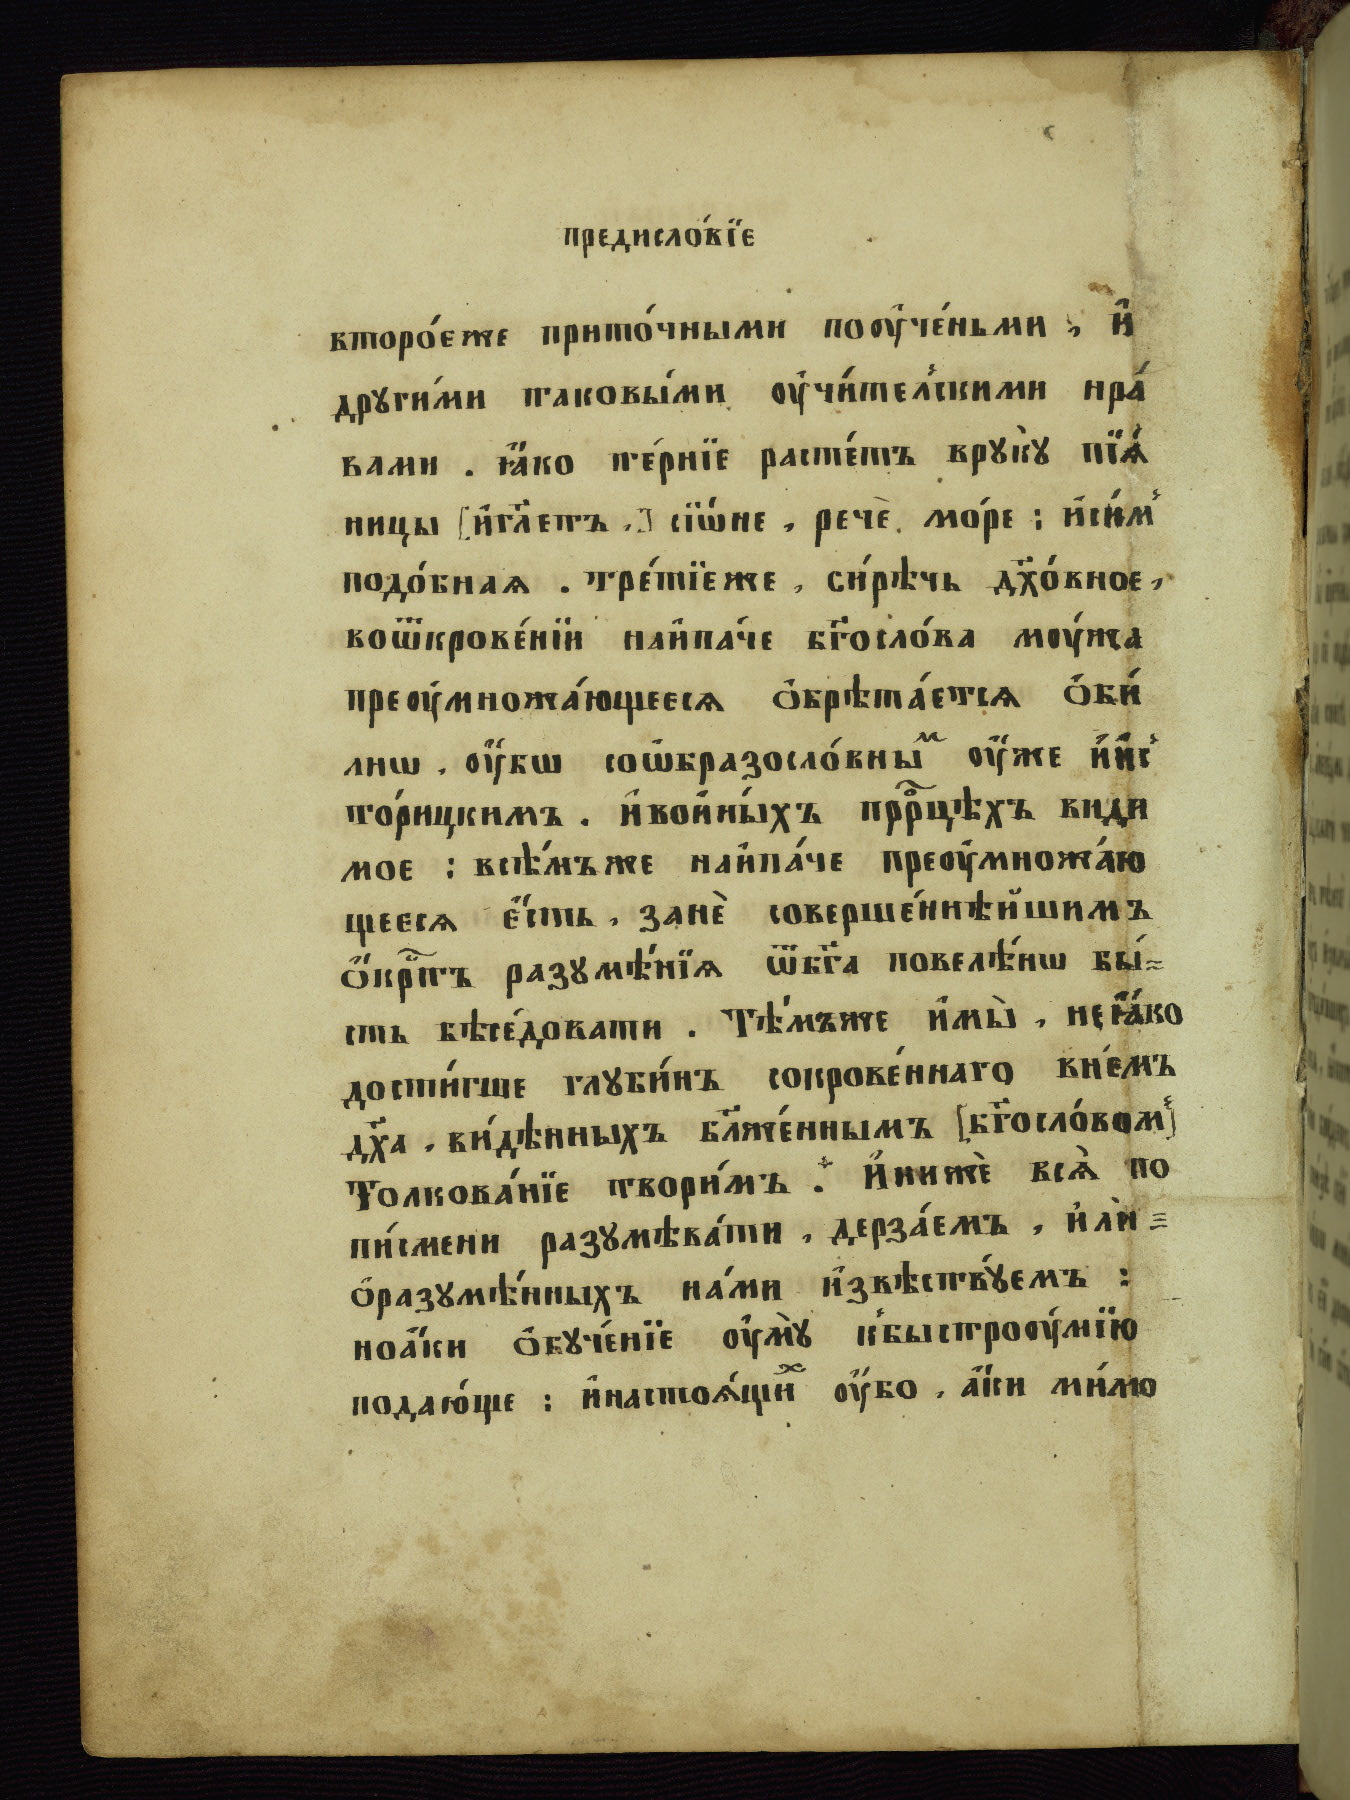 предисло́вїе
второ́еже прито́чными поꙋ҆че́ньми , и҆
други́ми таковы́ми оу҆чи́телскими нра́
вами . ꙗ҆́ко те́рнїе расте́тъ врꙋкꙋ̀ пїѧ́
ницы [и҆гл҃етъ ,] сїѡ́не , речѐ мо́ре : и҆си́м
подо́бнаѧ . тре́тїеже , си́рѣчь дх҃о́вное ,
воѿкрове́нїи наи҆па́че бг҃осло́ва мꙋ́жа
преꙋ҆множа́ющеесѧ ѻ҆брѣта́етсѧ ѻ҆би́
лнѡ , оу҆́бѡ соѡ҆бразосло́вныⷨ оу҆́же и҆и҆с
то́рицкимъ . и҆вои҆ны́хъ прⷪ҇рцѣхъ види
мое : всѣ́мъже наи҆па́че преꙋ҆множа́ю
щеесѧ є҆́сть , занѐ соверше́ннѣйшимъ
ѻ҆́кр҃тъ разꙋмѣ́нїѧ ѿбг҃а повелѣ́нѡ бы́=
сть бѣсе́довати . Тѣ́мъже и҆мы̀ , неꙗ҆́ко
дости́гше глꙋби́нъ сокрове́ннаго вне́мъ
дх҃а , ви́дѣнныхъ бл҃же́ннымъ [бг҃осло́вом]
Толкова́нїе твори́мъ . И҆нижѐ всѧ̀ по
пи́смени разꙋмѣва́ти , дерза́емъ , и҆лѝ =
ѻ҆разꙋмѣ́нныхъ на́ми и҆звѣствꙋ́емъ :
ноа҆́ки ѻ҆бꙋче́нїе оу҆мꙋ̀ к̾быстроꙋ́мїю
подаю́ще : и҆настоѧ́щиⷯ оу҆́бо , а҆́ки ми́мо